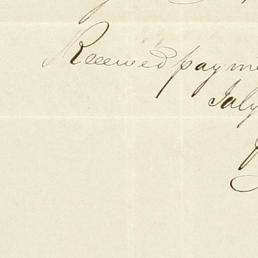 Received payme
July